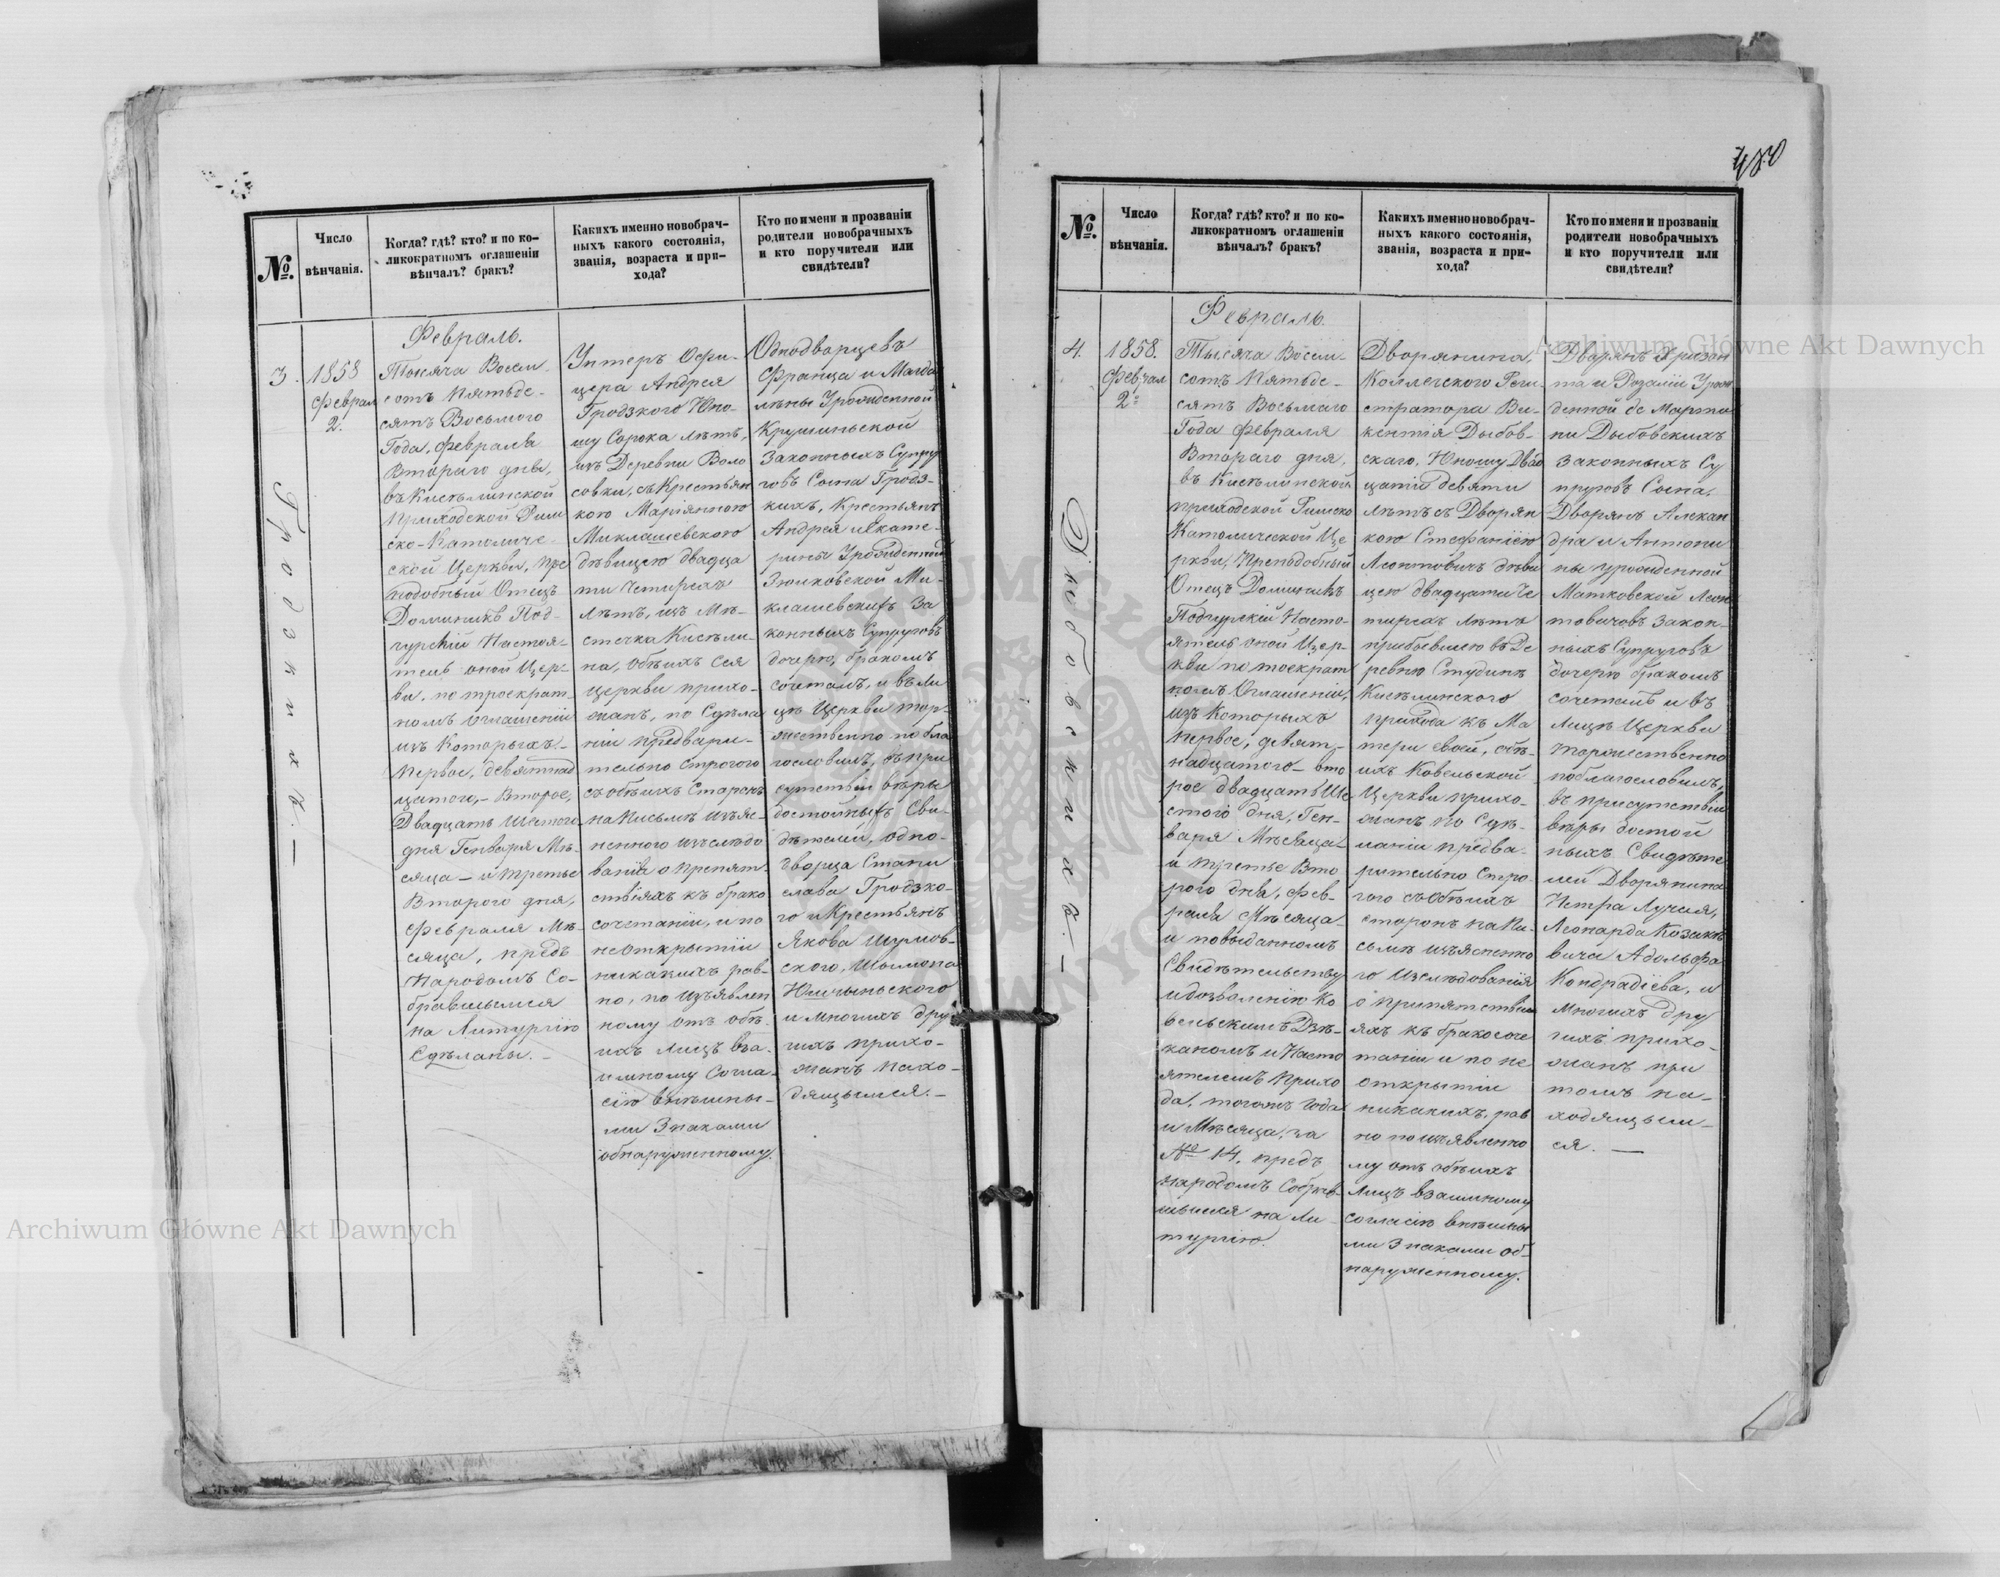 480
№.
Число
вѣнчанія.
Когда? гдѣ? кто? и по ко-
ликократномъ оглашеніи
вѣнчалъ? бракъ?
Какихъ именно новобрач-
ныхъ какого состоянія,
званія, возраста и при-
хода?
Кто по имени и прозванію
родители новобрачныхъ
и кто поручители или
свидѣтели?
3.
Гродзкихъ.—
1858
Феврал
2.
Февраль.
Тысяча Восем-
сотъ Пятьде-
сятъ Восьмого
Года, Февраля
Втораго дня,
въ Кисѣлинской
Приходской Рим
ско-Католиче-
ской Церкви, Пре
подобный Отецъ
Доминикъ Под-
гурскій Настоя-
тель оной Цер-
кви, по троекрат
номъ оглашеніи
изъ Которыхъ
Первое, девятнад
цатого,- Второе,
Двадцать шестого
дня Генваря Мѣ-
сяца- и третье
Второго дня,
Февраля Мѣ-
сяца, предъ
Народомъ Со-
бравшимся
на Литургію
Сдѣланы.-
Унтеръ Офи-
цера Андрея
Гродзкого Юно-
шу Сорока лѣтъ,
изъ Деревни Воло
совки, съ Крестьян
кою Маріянною
Миклашевскою
дѣвицею двадца
ти Четырехъ
лѣтъ, изъ Мѣ-
стечка Кисѣли-
на, обѣихъ сея
церкви прихо-
жанъ, по Сдѣла
ніи предвари-
тельно Строгого
съ обѣихъ Старонъ
на Письмѣ изъяс-
ненного изслѣдо
ванія о препят-
ствіяхъ къ брако
сочетанію, и по
неоткрытіи
никакихъ рав-
но, по изъявлен
ному отъ обѣ-
ихъ лицъ вза-
имному Согла-
сію внѣшны-
ми Знаками
обнаруженному.
Однодворцевъ
Франца и Магда
лѣны Урожденной
Крушиньской
Законныхъ Супру
говъ Сына Гродз-
кихъ, Крестьянъ
Андрея и Екате-
рины Урожденной
Зюлковской Ми-
клашевскихъ За
конныхъ Супруговъ
дочерю, бракомъ
сочеталъ, и въ Ли
цѣ Церкви тор-
жественно побла
гословилъ, въ при
сутствіи вѣры
достойныхъ Сви-
дѣтелей, одно-
дворца Стани
слава Гродзко-
го и Крестьянъ
Якова Шумов-
ского, Шымона
и многихъ дру
гихъ прихо-
жанъ нахо-
дящымся.-
№.
Число
вѣнчанія.
Когда? гдѣ? кто? и по ко-
ликократномъ оглашеніи
вѣнчалъ? бракъ?
Какихъ именно новобрач-
ныхъ какого состоянія,
званія, возраста и при-
хода?
Кто по имени и прозванію
родители новобрачныхъ
и кто поручители или
свидѣтели?
4.
Дыбовскихъ.—
1858.
Феврал
2.
Февраль.
Тысяча Восем-
сотъ Пятьде-
сятъ Восьмаго
Года Февраля
Втораго дня,
въ Кисѣлинской
приходской Римско
Католической Це
ркви, Преподобный
Отецъ Доминикъ
Подгурскій Насто-
ятель оной Цер-
кви по троекрат
номъ Оглашеніи,
изъ Которыхъ
Первое, девят-
надцатого- вто
рое двадцать Ше
стого дня, Ген-
варя Мѣсяца
и третье Вто
рого дня, Фев-
раля Мѣсяца
и по выданному
Свидѣтельству
и дозволенію Ко
вельскимъ Дѣ-
каномъ и Насто
ятелемъ Прихо
да, тогожъ Года
и Мѣсяца, за
№ 14, предъ
народомъ Собрав-
шымся на Ли-
тургію.
Дворянина,
Коллегского Реги-
стратора Ви-
кентія Дыбов-
скаго, Юношу Два
цати девяти
лѣтъ съ Дворян
кою Стефаніею
Леонтовичъ дѣви
цею двадцати Че
тырехъ лѣтъ
прибывшею въ Де
ревню Студинъ
Кисѣлинского
прихода къ Ма
тери своей, обѣ-
ихъ Ковельской
Церкви прихо-
жанъ по Сдѣ-
ланіи предва-
рительно Стро-
гого съ обѣихъ
сторонъ на Пи-
сьмѣ изъяснено
го Изслѣдованія
о препятствіи
яхъ къ бракосоче
танію и по не
открытіи
никакихъ, рав
но по изъявлено
му отъ обѣихъ
лицъ взаимному
согласію внѣшны
ми Знаками об-
наруженному.
Дворянъ Хризан
та и Розаліи Урож
денной де Марти
ни Дыбовскихъ
законныхъ Су
пруговъ Сына,
Дворянъ Алексан
дра и Антони
ны урожденной
Матковской Леон
товичовъ Закон-
ныхъ Супруговъ
дочерю бракомъ
сочеталъ и въ
Лицѣ Церкви
торжественно
поблагословилъ,
въ присутствіи
вѣры достой
ныхъ Свидѣте
лей Дворянина
Петра Лучая,
Леонарда Козаке
вича Адольфа
Кондрадіева, и
многихъ дру
гихъ прихо-
жанъ при
томъ на-
ходящым-
ся.—
Archiwum Główne Akt Dawnych
Archiwum Główne Akt Dawnych